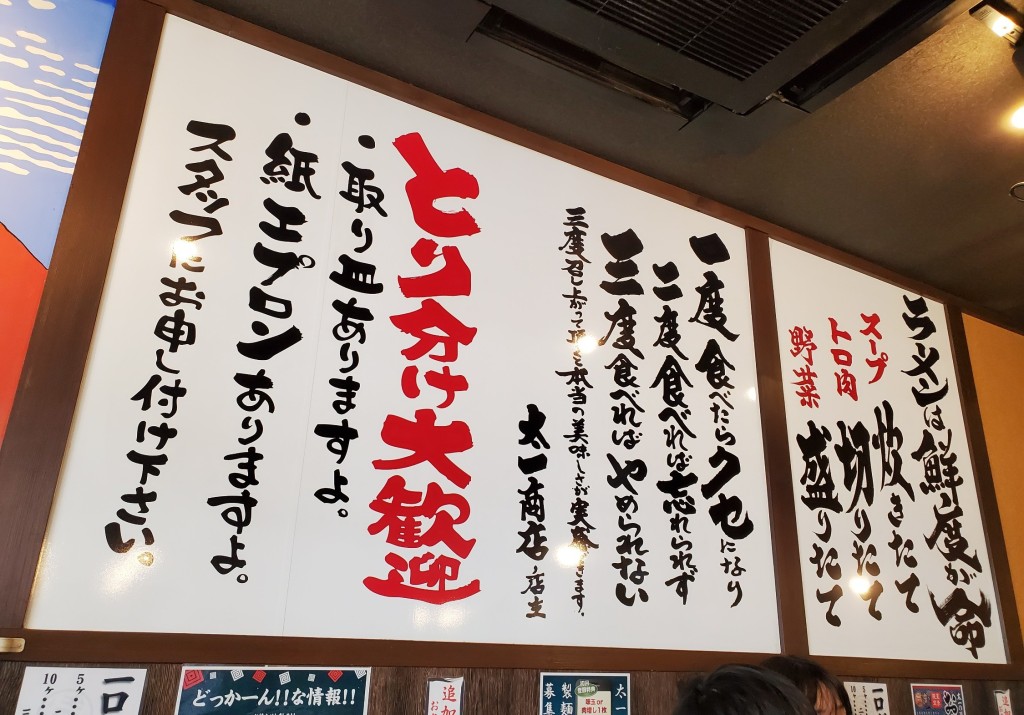 ラーメンは鮮度が命
スープ 炊きたて
トロ肉 切りたて
野菜 盛りたて
一度食べたらクセになり
二度食べれば忘れられず
三度食べればやめられない
三度召し上がって頂くと本当の美味しさが実感できます。
太一商店 店主
とり分け大歓迎
・取り皿ありますよ。
・紙エプロンありますよ。
スタッフにお申し付け下さい。
一口
5ヶ
10ヶ
どっかーん!!な情報!!
追加
太一
製麺
募集
替玉or
煮卵し1枚
一口